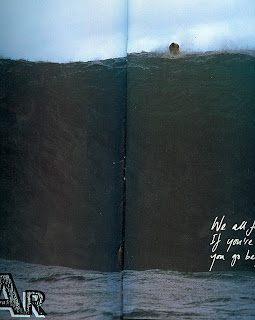 We all f
If you've
you go be
AIR